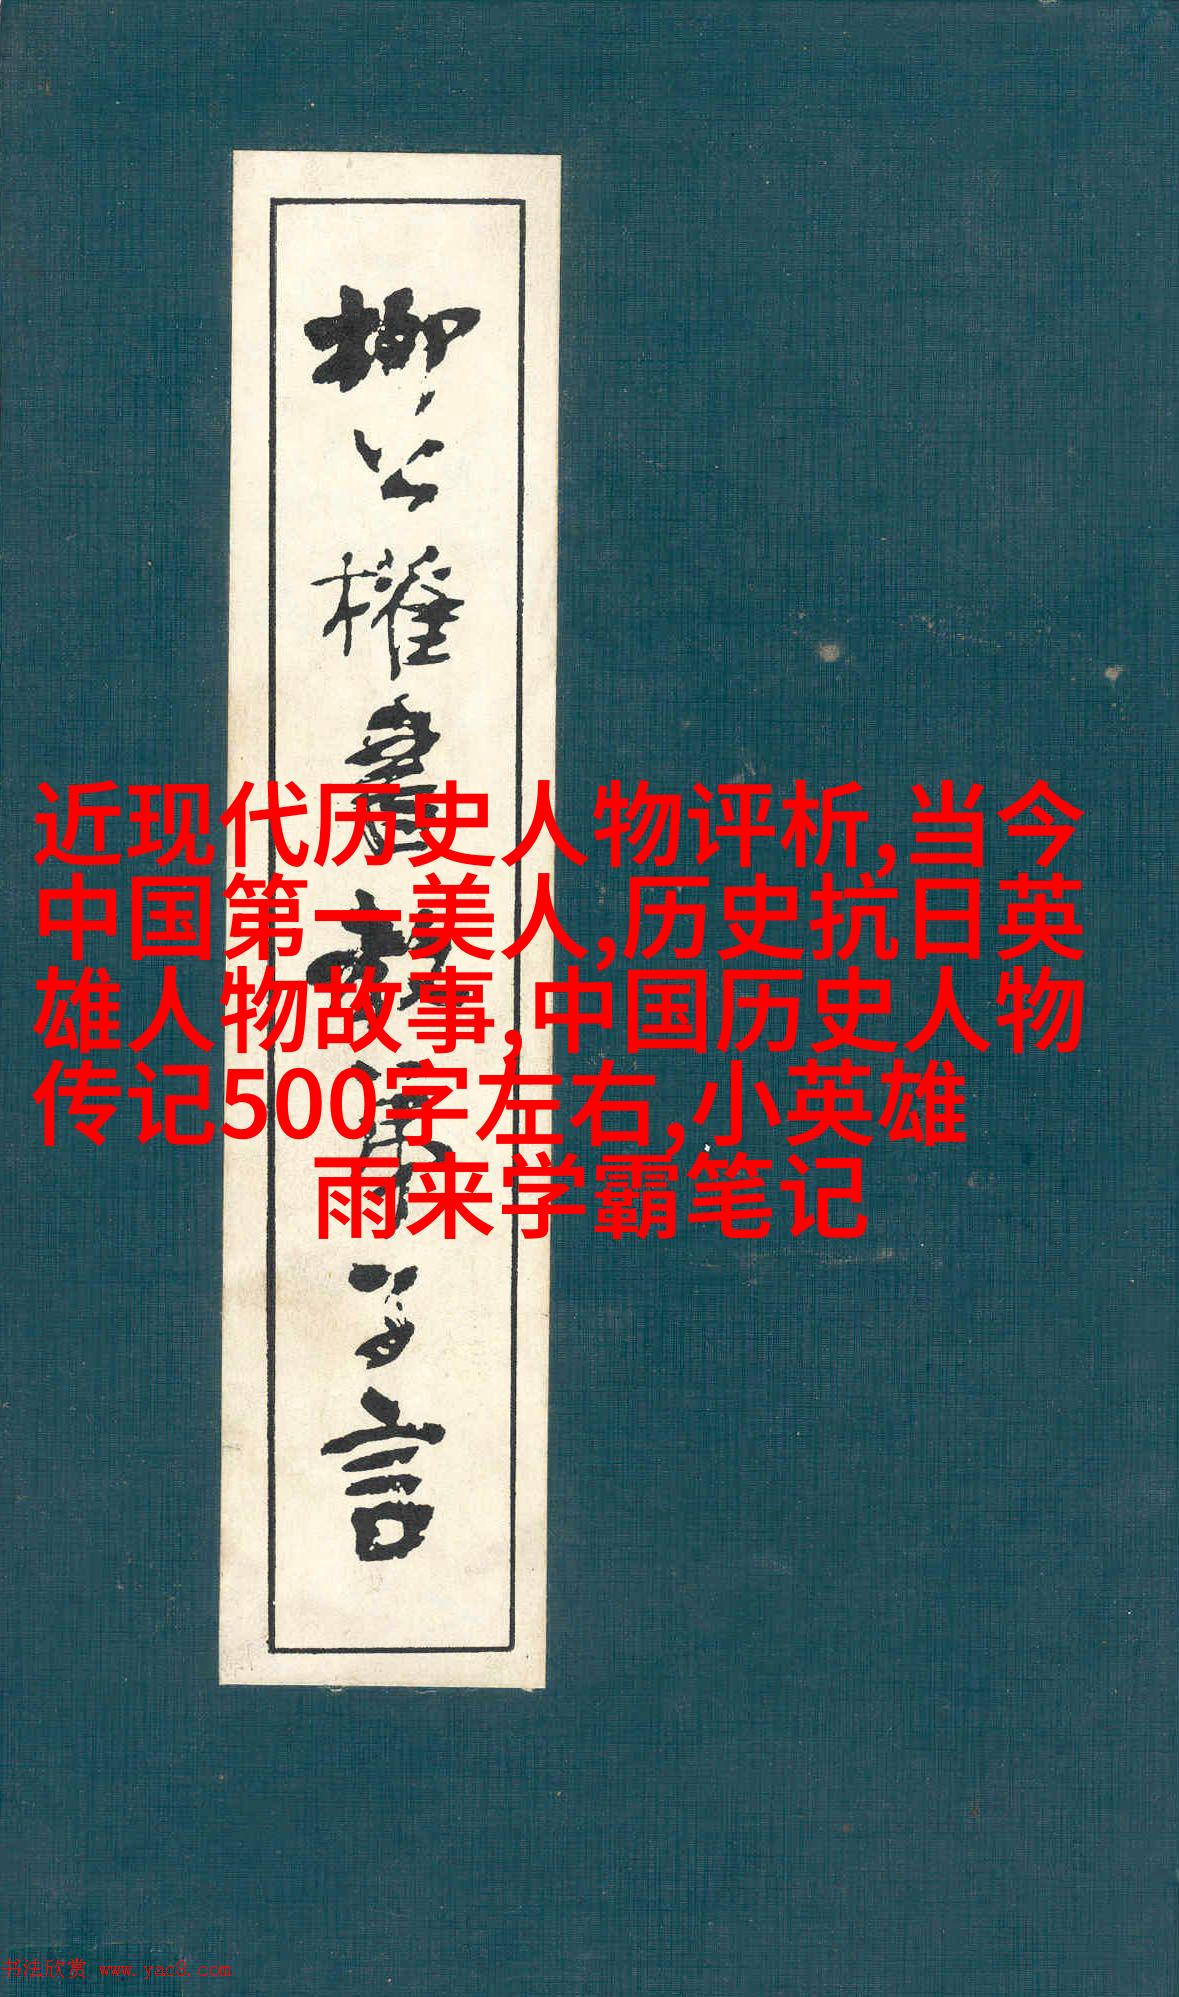 柳公權書
言
近现代历史人物评析,当今
中国第一美人,历史抗日英
雄人物故事,中国历史人物
传记500字左右,小英雄
雨来学霸笔记
书法欣赏 www.yac8.com